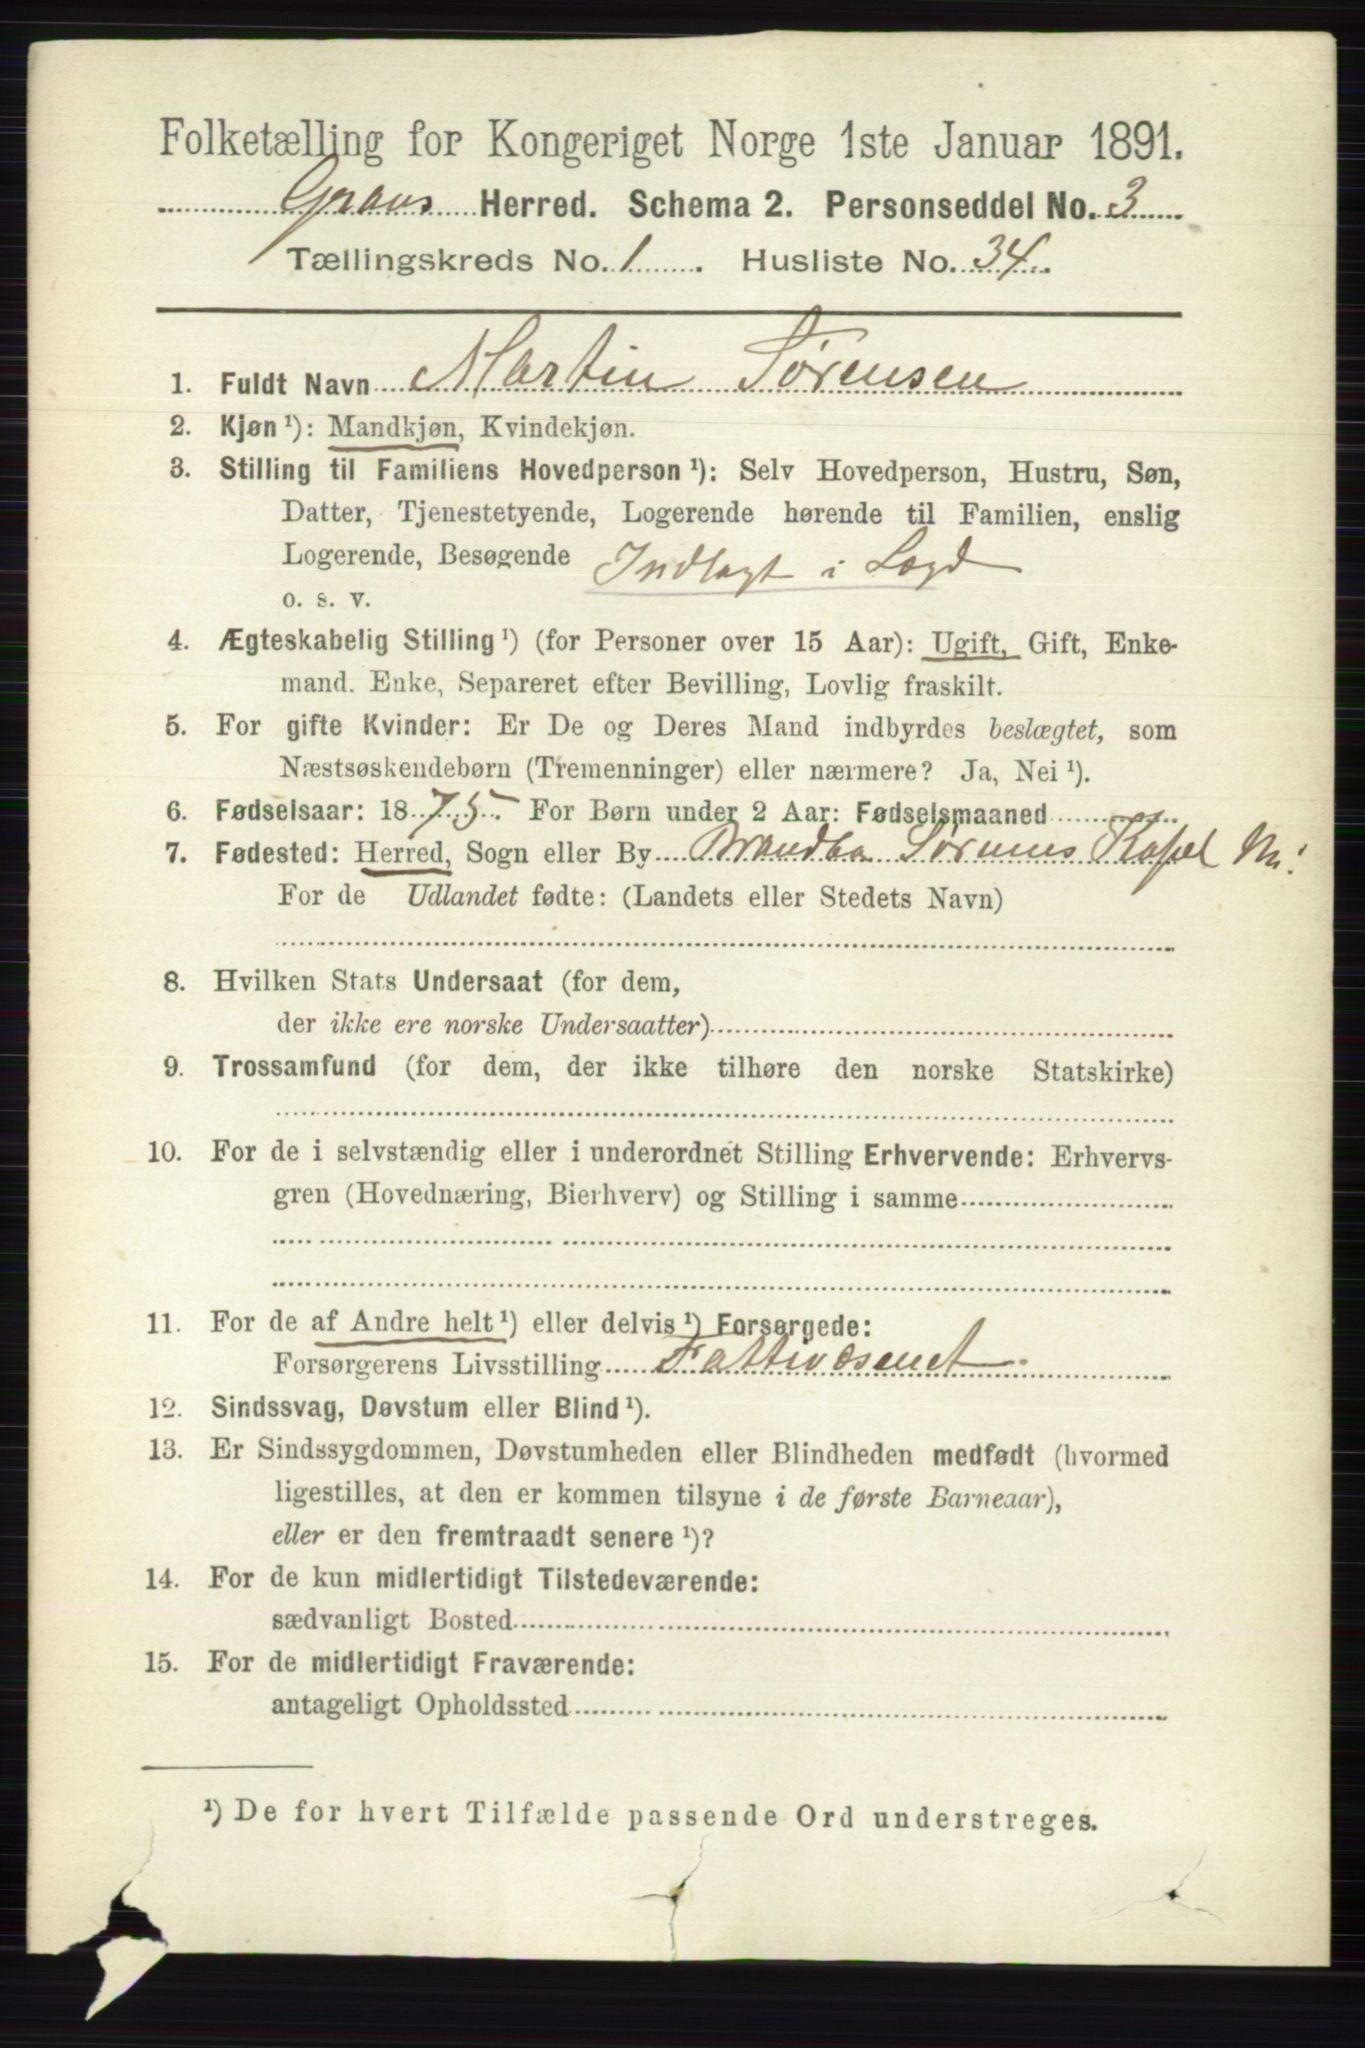 Folketælling for Kongeriget Norge 1ste Januar 1891.
Grans Herred. Schema 2. Personseddel No. 3
Tællingskreds No. 1. Husliste No. 34.
1. Fuldt Navn Martin Sørensen
2. Kjøn ¹): Mandkjøn, Kvindekjøn.
3. Stilling til Familiens Hovedperson ¹): Selv Hovedperson, Hustru, Søn,
Datter, Tjenestetyende, Logerende hørende til Familien, enslig
Logerende, Besøgende Indlagt i Lægd
o. s. v.
4. Ægteskabelig Stilling ¹) (for Personer over 15 Aar): Ugift, Gift, Enke-
mand. Enke, Separeret efter Bevilling, Lovlig fraskilt.
5. For gifte Kvinder: Er De og Deres Mand indbyrdes beslægtet, som
Næstsøskendebørn (Tremenninger) eller nærmere? Ja, Nei ¹).
6. Fødselsaar: 1875. For Børn under 2 Aar: Fødselsmaaned
7. Fødested: Herred, Sogn eller By Brandbu Sørums Kapel
For de Udlandet fødte: (Landets eller Stedets Navn)
8. Hvilken Stats Undersaat (for dem,
der ikke ere norske Undersaatter)
9. Trossamfund (for dem, der ikke tilhøre den norske Statskirke)
10. For de i selvstændig eller i underordnet Stilling Erhvervende: Erhvervs-
gren (Hovednæring, Bierhverv) og Stilling i samme
11. For de af Andre helt ¹) eller delvis ¹) Forsørgede:
Forsørgerens Livsstilling Fattivæsenet
12. Sindssvag, Døvstum eller Blind ¹).
13. Er Sindssygdommen, Døvstumheden eller Blindheden medfødt (hvormed
ligestilles, at den er kommen tilsyne i de første Barneaar),
eller er den fremtraadt senere ¹)?
14. For de kun midlertidigt Tilstedeværende:
sædvanligt Bosted
15. For de midlertidigt Fraværende:
antageligt Opholdssted
¹) De for hvert Tilfælde passende Ord understreges.